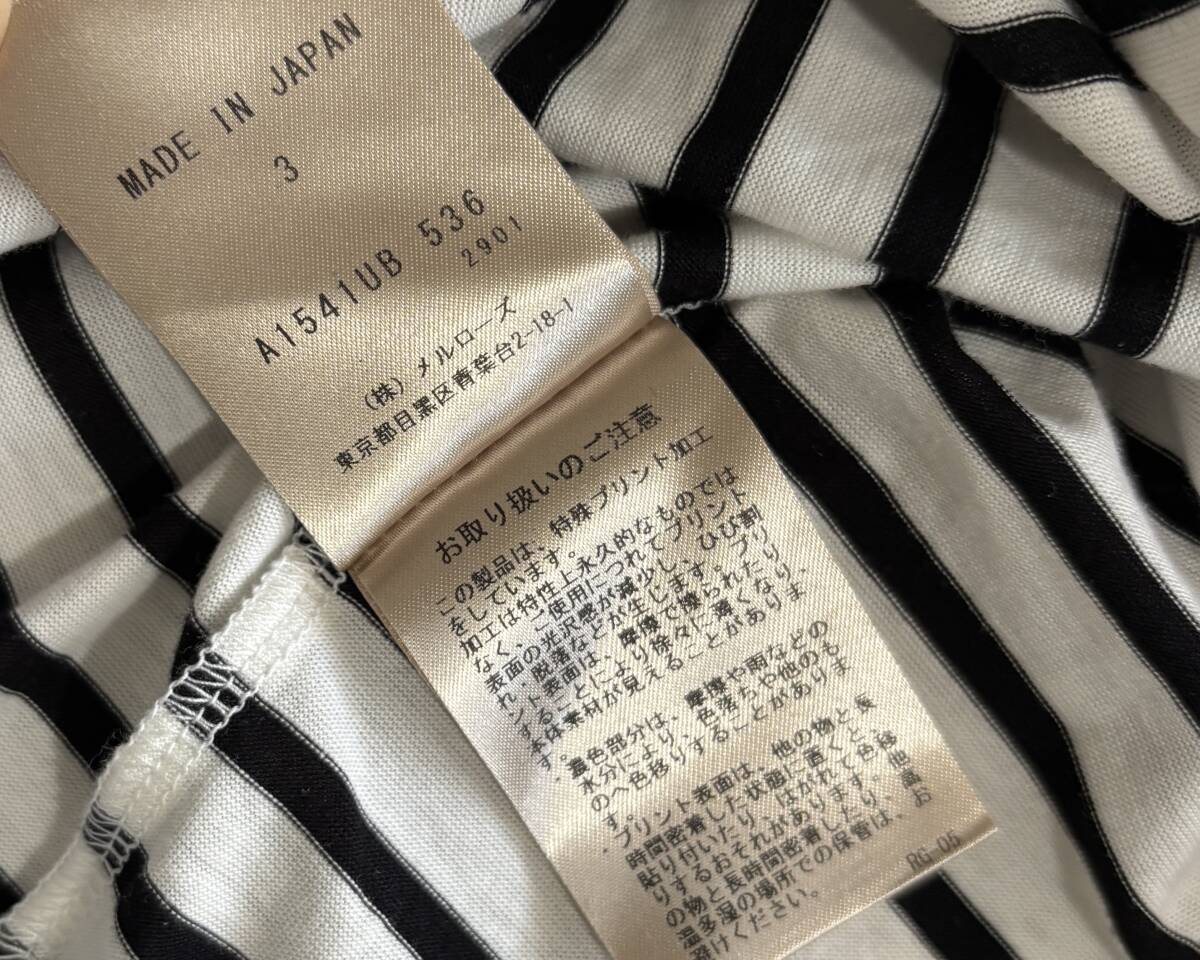 MADE IN JAPAN
3
A1541UB 536
2901
(株) メルローズ
東京都目黒区青葉台2-18-1
お取り扱いのご注意
この製品は、特殊プリント加工
をしています。
加工は特性上永久的なものでは
なく、ご使用につれてプリント
表面の光沢感が減少し、ひび割
れ、脱落などが生じます。プリ
ント表面は、摩擦で擦られたり
することにより徐々に薄くなり、
本体素材が見えることがありま
す。
・着色部分は、摩擦や雨などの
水分により、色落ちや他のも
のへ色移りすることがありま
す。
・プリント表面は、他の物と長
時間密着した状態に置くと、
貼り付いたり、はがれて色移
りするおそれがあります。他
の物と長時間密着したり、高
温多湿の場所での保管は、お
避けください。
RG-05